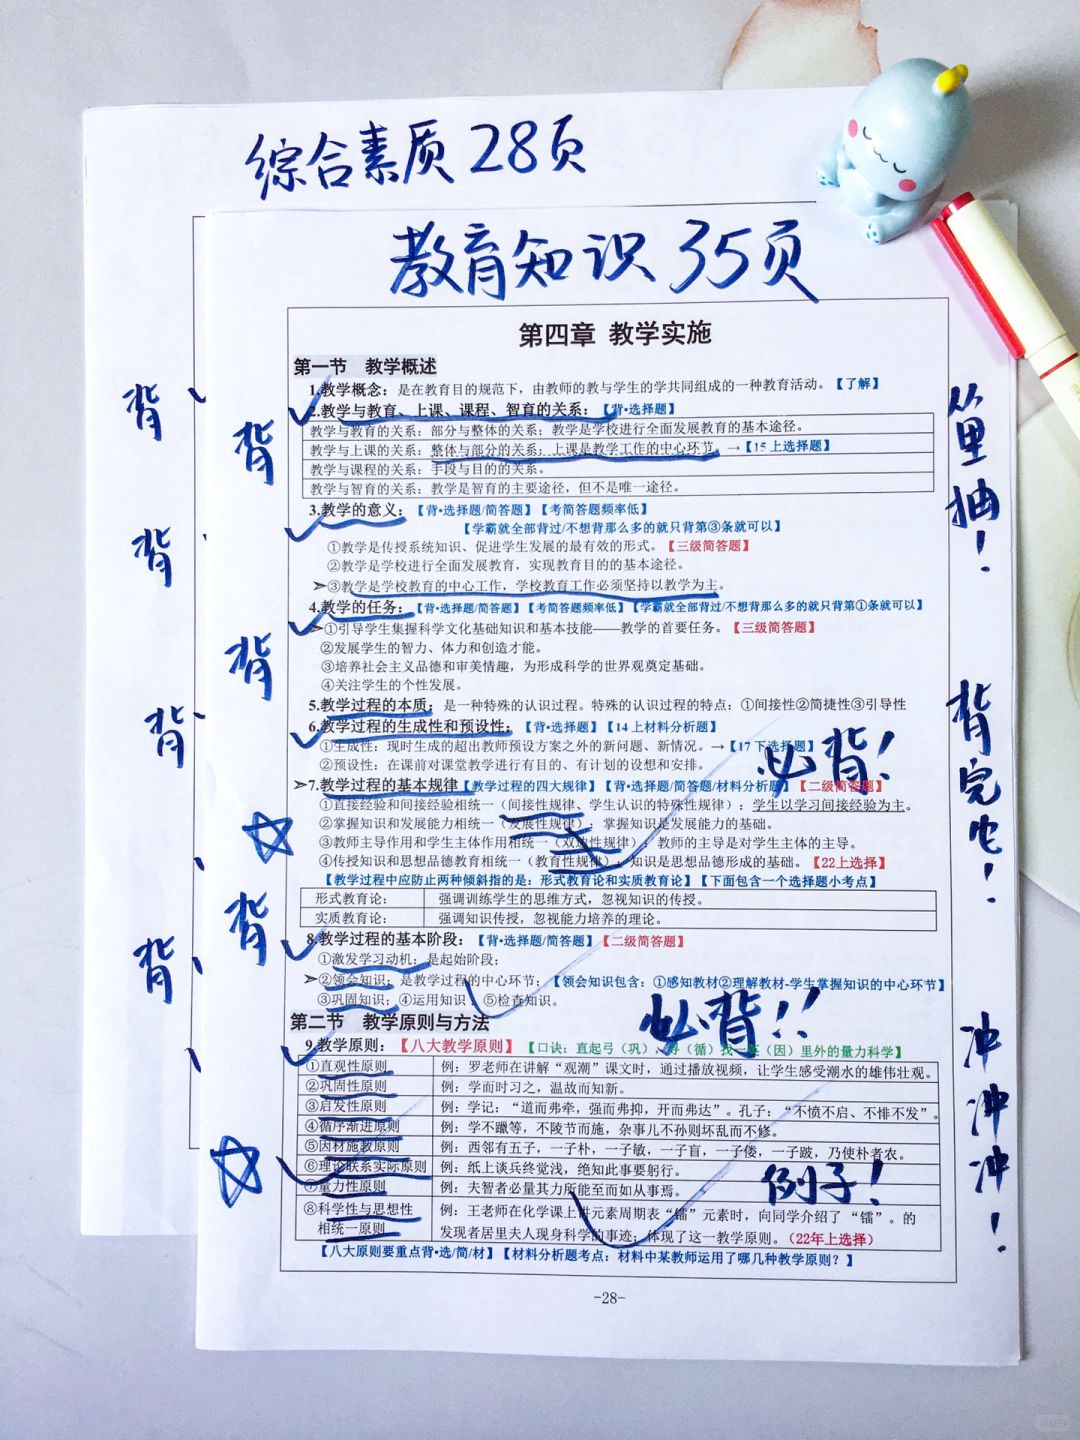 综合素质28页
教育知识35页
第四章 教学实施
第一节 教学概述
1.教学概念：是在教育目的规范下，由教师的教与学生的学共同组成的一种教育活动。【了解】
2.教学与教育、上课、课程、智育的关系：【背•选择题】
教学与教育的关系：部分与整体的关系；教学是学校进行全面发展教育的基本途径。
教学与上课的关系：整体与部分的关系；上课是教学工作的中心环节。→【15上选择题】
教学与课程的关系：手段与目的的关系。
教学与智育的关系：教学是智育的主要途径，但不是唯一途径。
3.教学的意义：【背•选择题/简答题】【考简答题频率低】
【学霸就全部背过/不想背那么多的就只背第③条就可以】
①教学是传授系统知识、促进学生发展的最有效的形式。【三级简答题】
②教学是学校进行全面发展教育，实现教育目的的基本途径。
➢③教学是学校教育的中心工作，学校教育工作必须坚持以教学为主。
4.教学的任务：【背•选择题/简答题】【考简答题频率低】【学霸就全部背过/不想背那么多的就只背第①条就可以】
➢①引导学生集握科学文化基础知识和基本技能——教学的首要任务。【三级简答题】
②发展学生的智力、体力和创造才能。
③培养社会主义品德和审美情趣，为形成科学的世界观奠定基础。
④关注学生的个性发展。
5.教学过程的本质：是一种特殊的认识过程。特殊的认识过程的特点：①间接性②简捷性③引导性
6.教学过程的生成性和预设性：【背•选择题】【14上材料分析题】
①生成性：现时生成的超出教师预设方案之外的新问题、新情况。→【17下选择题】
②预设性：在课前对课堂教学进行有目的、有计划的设想和安排。
➢7.教学过程的基本规律【教学过程的四大规律】【背•选择题/简答题/材料分析题】【二级简答题】
①直接经验和间接经验相统一（间接性规律、学生认识的特殊性规律）：学生以学习间接经验为主。
②掌握知识和发展能力相统一（发展性规律）：掌握知识是发展能力的基础。
③教师主导作用和学生主体作用相统一（双边性规律）：教师的主导是对学生主体的主导。
④传授知识和思想品德教育相统一（教育性规律）：知识是思想品德形成的基础。【22上选择】
【教学过程中应防止两种倾斜指的是：形式教育论和实质教育论】【下面包含一个选择题小考点】
形式教育论： 强调训练学生的思维方式，忽视知识的传授。
实质教育论： 强调知识传授，忽视能力培养的理论。
8.教学过程的基本阶段：【背•选择题/简答题】【二级简答题】
①激发学习动机：是起始阶段；
➢②领会知识：是教学过程的中心环节；【领会知识包含：①感知教材②理解教材-学生掌握知识的中心环节】
③巩固知识；④运用知识；⑤检查知识。
第二节 教学原则与方法
9.教学原则：【八大教学原则】【口诀：直起弓（巩），寻（循）找一座（因）里外的量力科学】
①直观性原则 例：罗老师在讲解“观潮”课文时，通过播放视频，让学生感受潮水的雄伟壮观。
②巩固性原则 例：学而时习之，温故而知新。
③启发性原则 例：学记：“道而弗牵，强而弗抑，开而弗达”。孔子：“不愤不启、不悱不发”。
④循序渐进原则 例：学不躐等，不陵节而施，杂事儿不孙则坏乱而不修。
⑤因材施教原则 例：西邻有五子，一子朴，一子敏，一子盲，一子偻，一子跛，乃使朴者农。
⑥理论联系实际原则 例：纸上谈兵终觉浅，绝知此事要躬行。
⑦量力性原则 例：夫智者必量其力所能至而如从事焉。
⑧科学性与思想性 例：王老师在化学课上讲元素周期表“镭”元素时，向同学介绍了“镭”。的
相统一原则 发现者居里夫人现身科学的事迹；体现了这一教学原则。（22年上选择）
【八大原则要重点背•选/简/材】【材料分析题考点：材料中某教师运用了哪几种教学原则？】
-28-
背
背
背
背
背
背
背
必背！
必背！！
例子！
从里抽！
背完它！
冲冲冲！